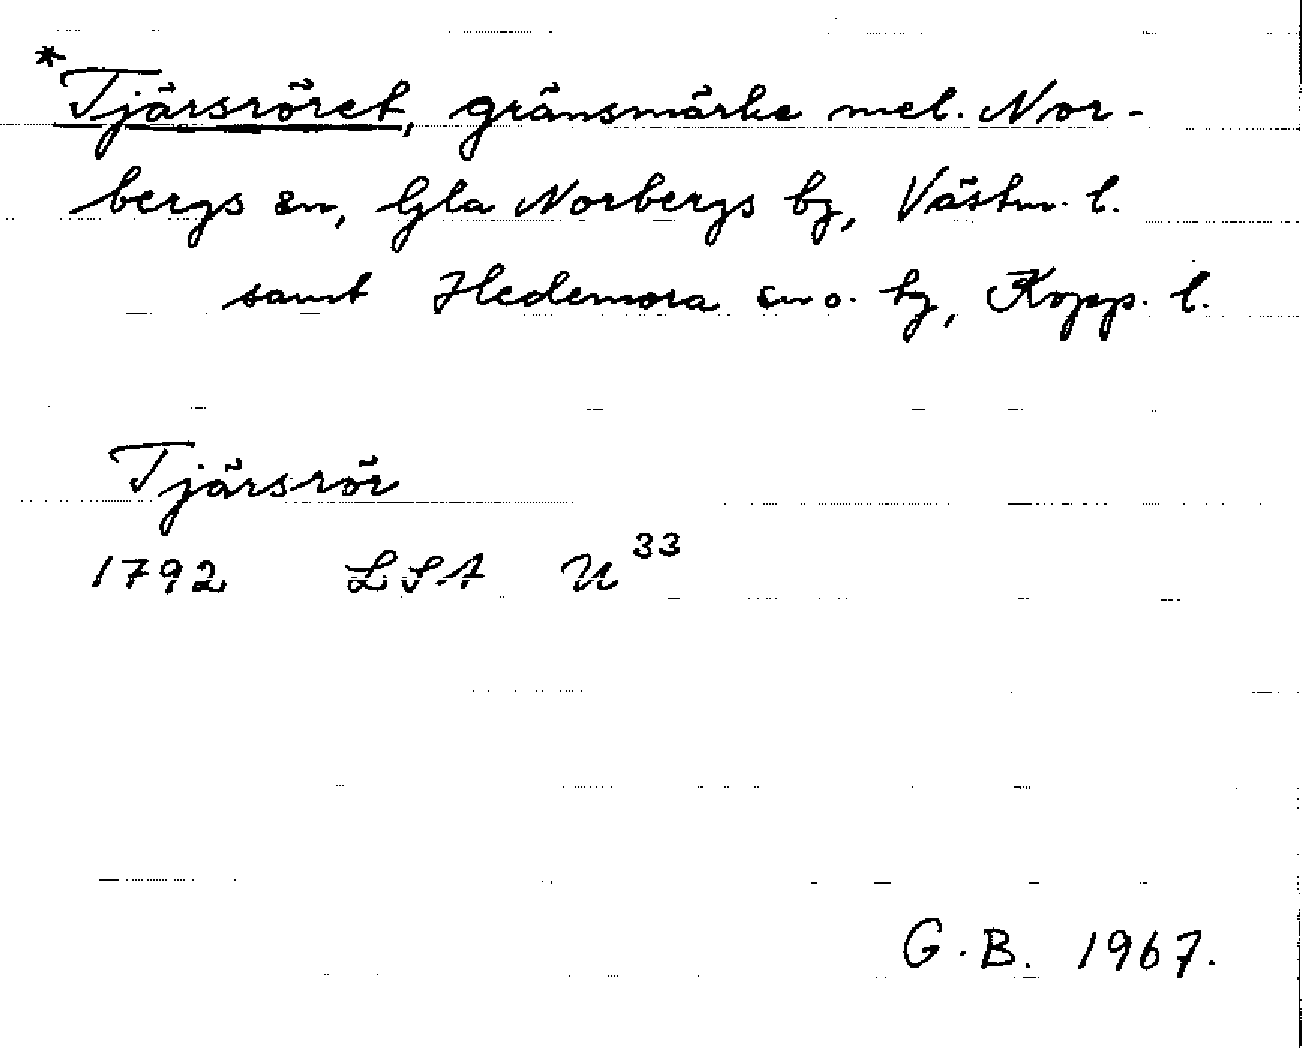 *Tjärsröret, gränsmärke mel. Nor-
bergs sn, Gla Norbergs bg, Västm. l.
samt Hedemora sn o. bg, Kopp. l.
Tjärsrör
1792 LSA U³³
G.B. 1967.